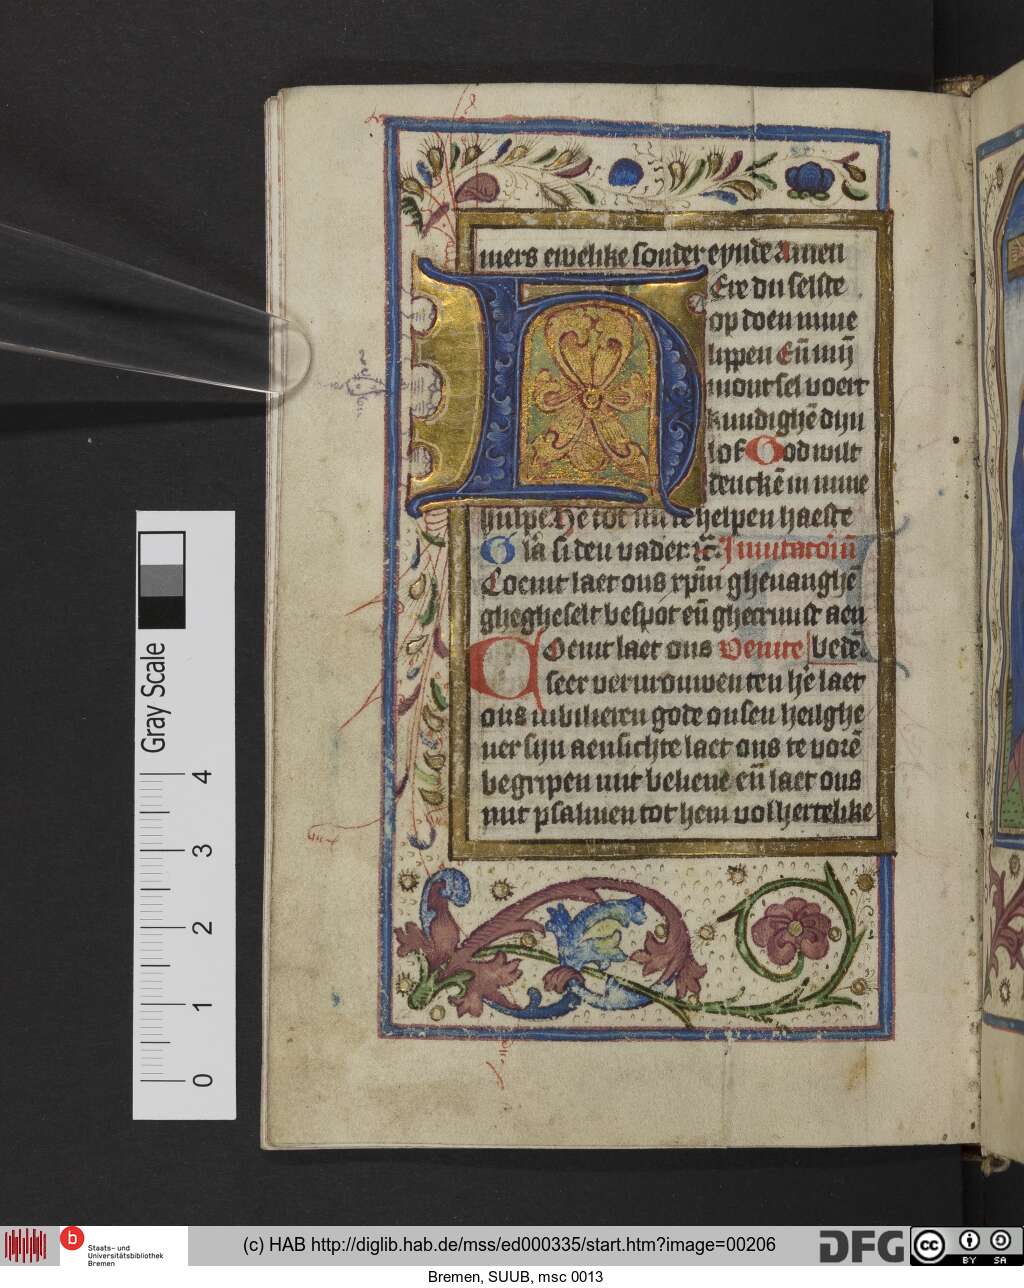 mers ewelike sonder eynde Amen
HEre du selste
op doen mine
lippen Eñ mijn
mont sel voert
kundighē dijn
lof God wilt
denckē in mine
hulpe. He tot mi te helpen haeste
Gla si den vader ꝛc̄. Inuitatoriū
Coemt laet ons xp̄m ghevanghē
ghegheselt bespot eñ ghecruust aen
Coemt laet ons Venite bedē.
seer vervrouwen ten hē laet
ons iubilieren gode onsen heilghe
uer sijn aensichte laet ons te vorē
begripen mit beliene eñ laet ons
mit psalmen tot hem volhertelike
Gray Scale
4
3
2
1
0
b
Staats- und
Universitätsbibliothek
Bremen
(c) HAB http://diglib.hab.de/mss/ed000335/start.htm?image=00206
DFG
cc
BY SA
Bremen, SUUB, msc 0013